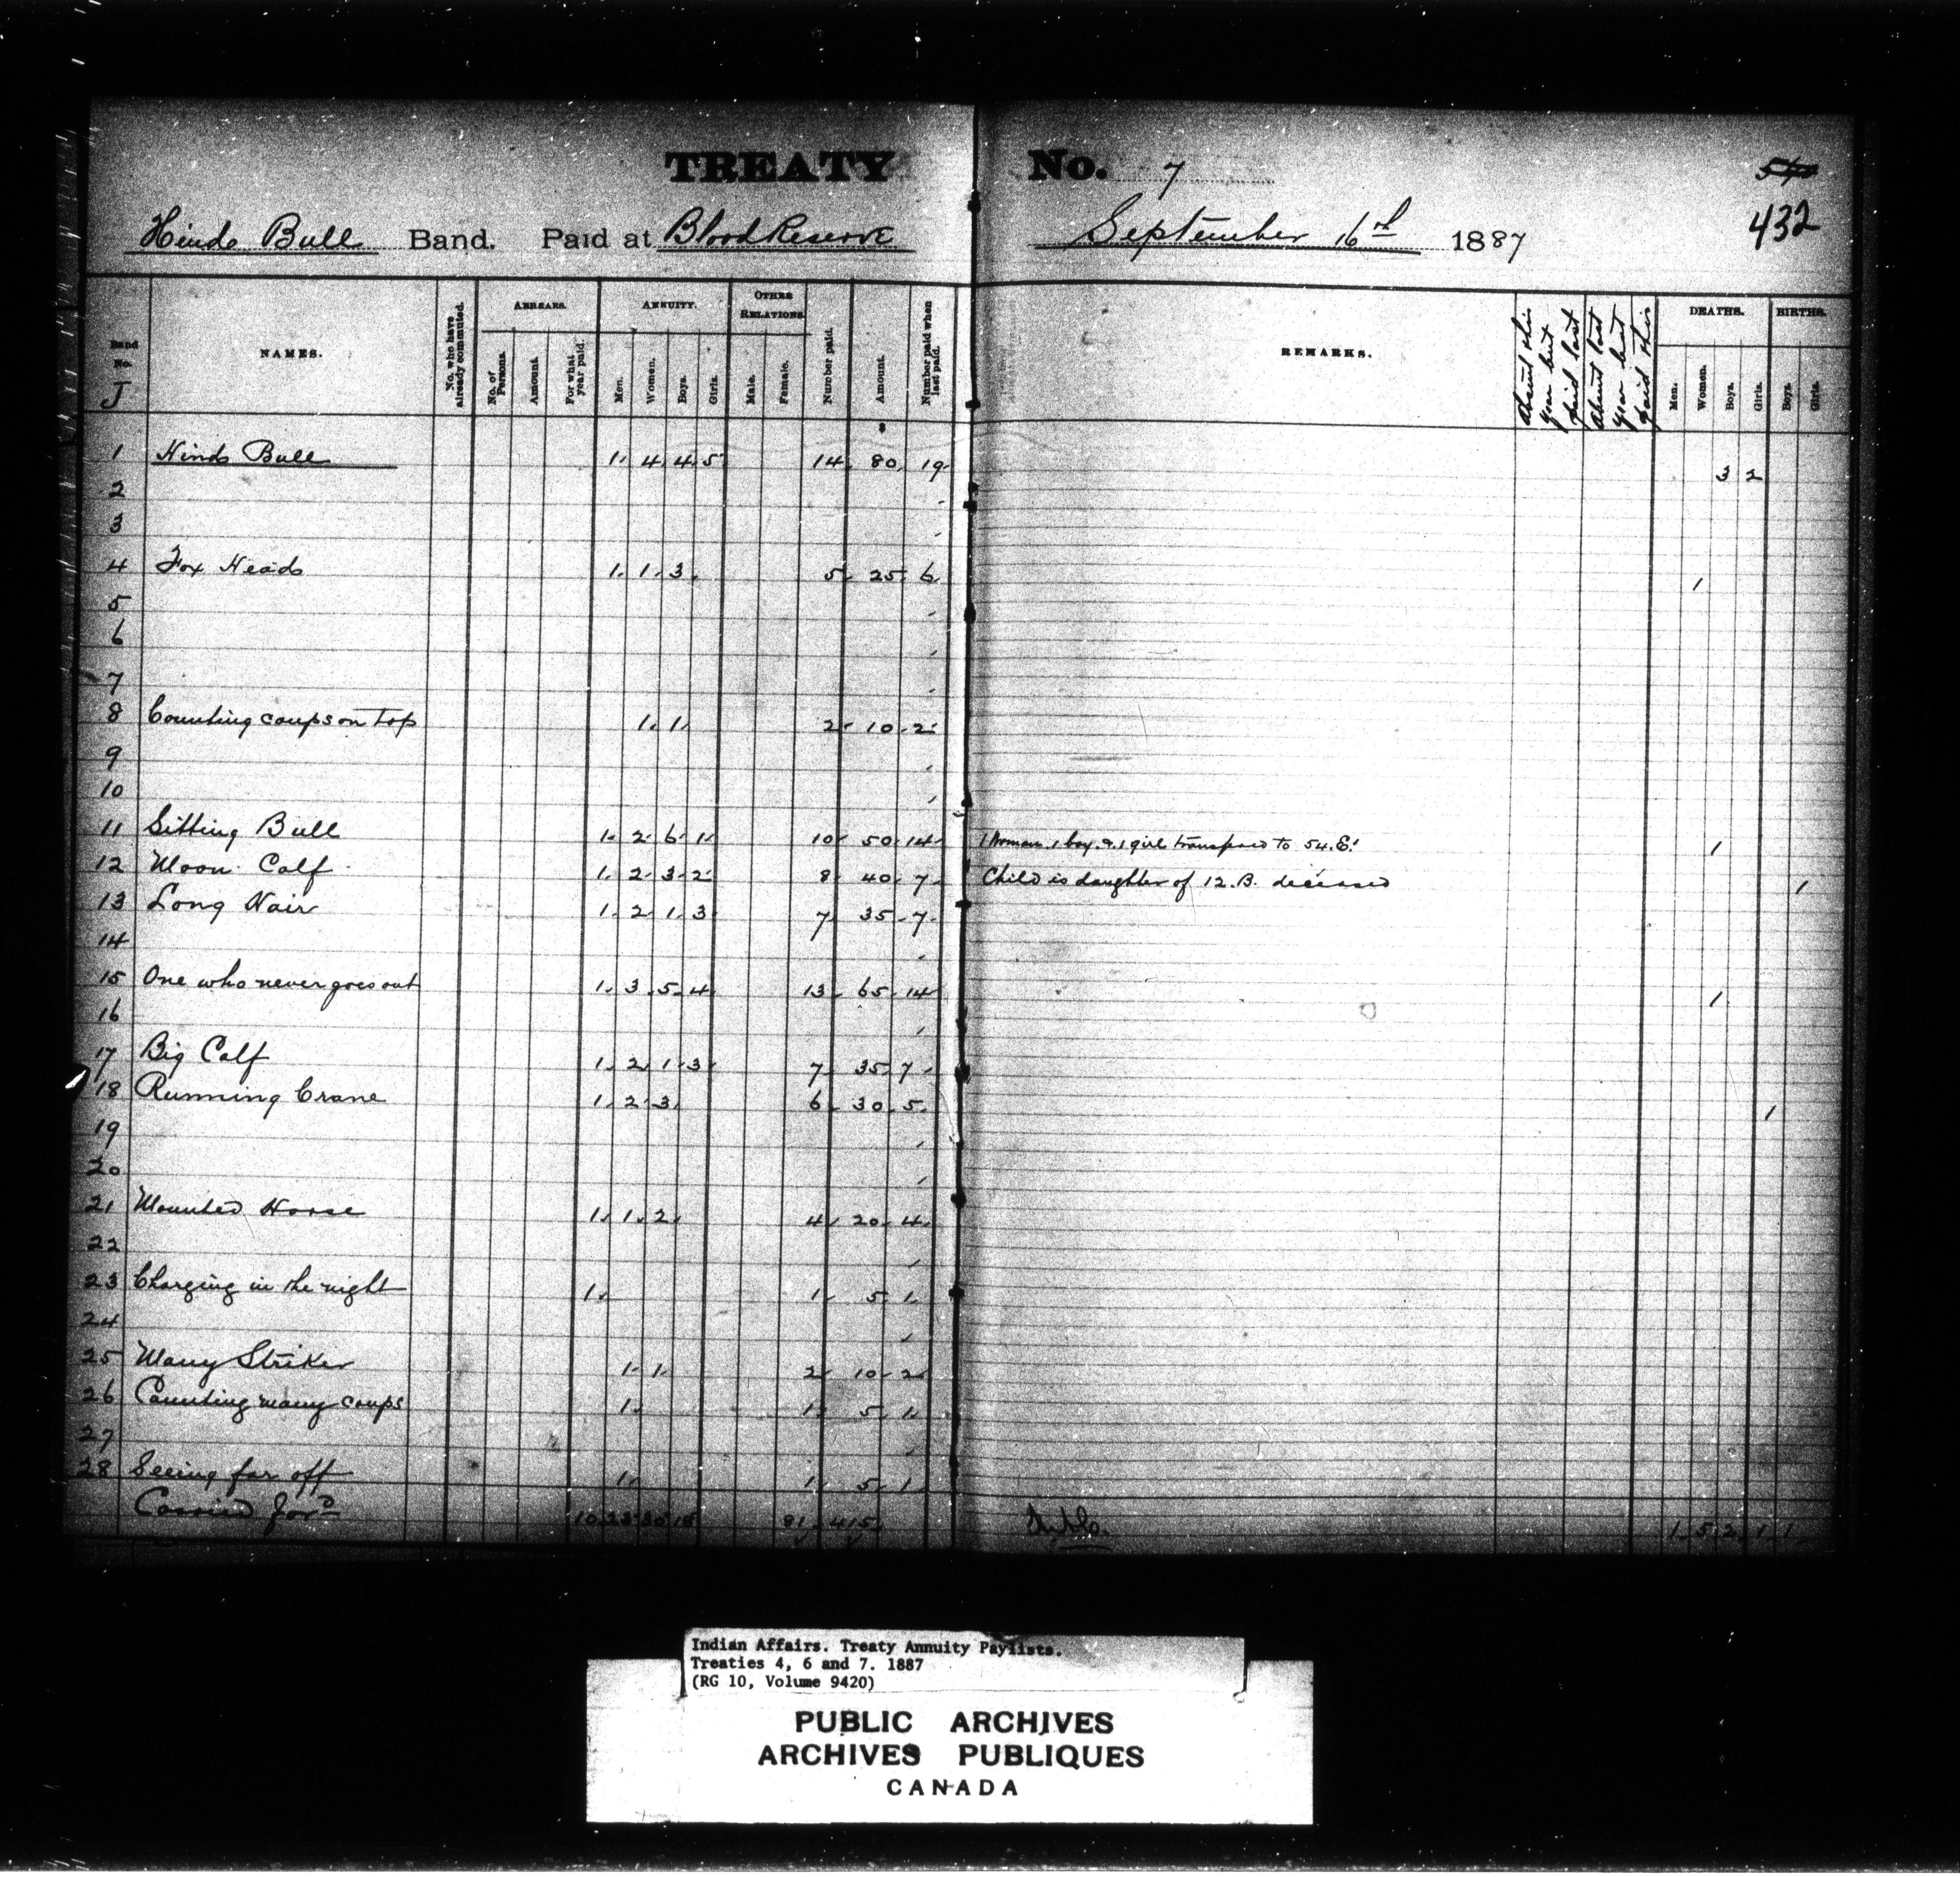 TREATY No. 7
54
432
Hinds Bull Band. Paid at Blood Reserve September 16th 1887
Band No. J
NAMES.
No. who have already commuted.
ARREARS.
No. of Persons.
Amount.
For what year paid.
ANNUITY.
Men.
Women.
Boys.
Girls.
OTHER RELATIONS.
Male.
Female.
Number paid.
Amount.
Number paid when last paid.
REMARKS.
Absent this year but paid last
Absent last year but paid this
DEATHS.
Men.
Women.
Boys.
Girls.
BIRTHS.
Boys.
Girls.
1 Hinds Bull 1 4 4 5 14 80 19 3 2
2
3
4 Fox Head 1 1 3 5 25 6 1
5
6
7
8 Counting coups on top 1 1 2 10 2
9
10
11 Sitting Bull 1 2 6 1 10 50 14 1 Woman 1 boy & 1 girl transferred to 54.E. 1
12 Moon Calf 1 2 3 2 8 40 7 Child is daughter of 12.B. deceased 1
13 Long Hair 1 2 1 3 7 35 7
14
15 One who never goes out 1 3 5 4 13 65 14 1
16
17 Big Calf 1 2 1 3 7 35 7
18 Running Crane 1 2 3 6 30 5 1
19
20
21 Mounted Horse 1 1 2 4 20 4
22
23 Charging in the night 1 1 5 1
24
25 Many Striker 1 1 2 10 2
26 Counting many coups 1 1 5 1
27
28 Seeing far off 1 1 5 1
Carried ford 10 23 30 18 81 415 1 5 2 1 1
Indian Affairs. Treaty Annuity Paylists.
Treaties 4, 6 and 7. 1887
(RG 10, Volume 9420)
PUBLIC ARCHIVES
ARCHIVES PUBLIQUES
CANADA